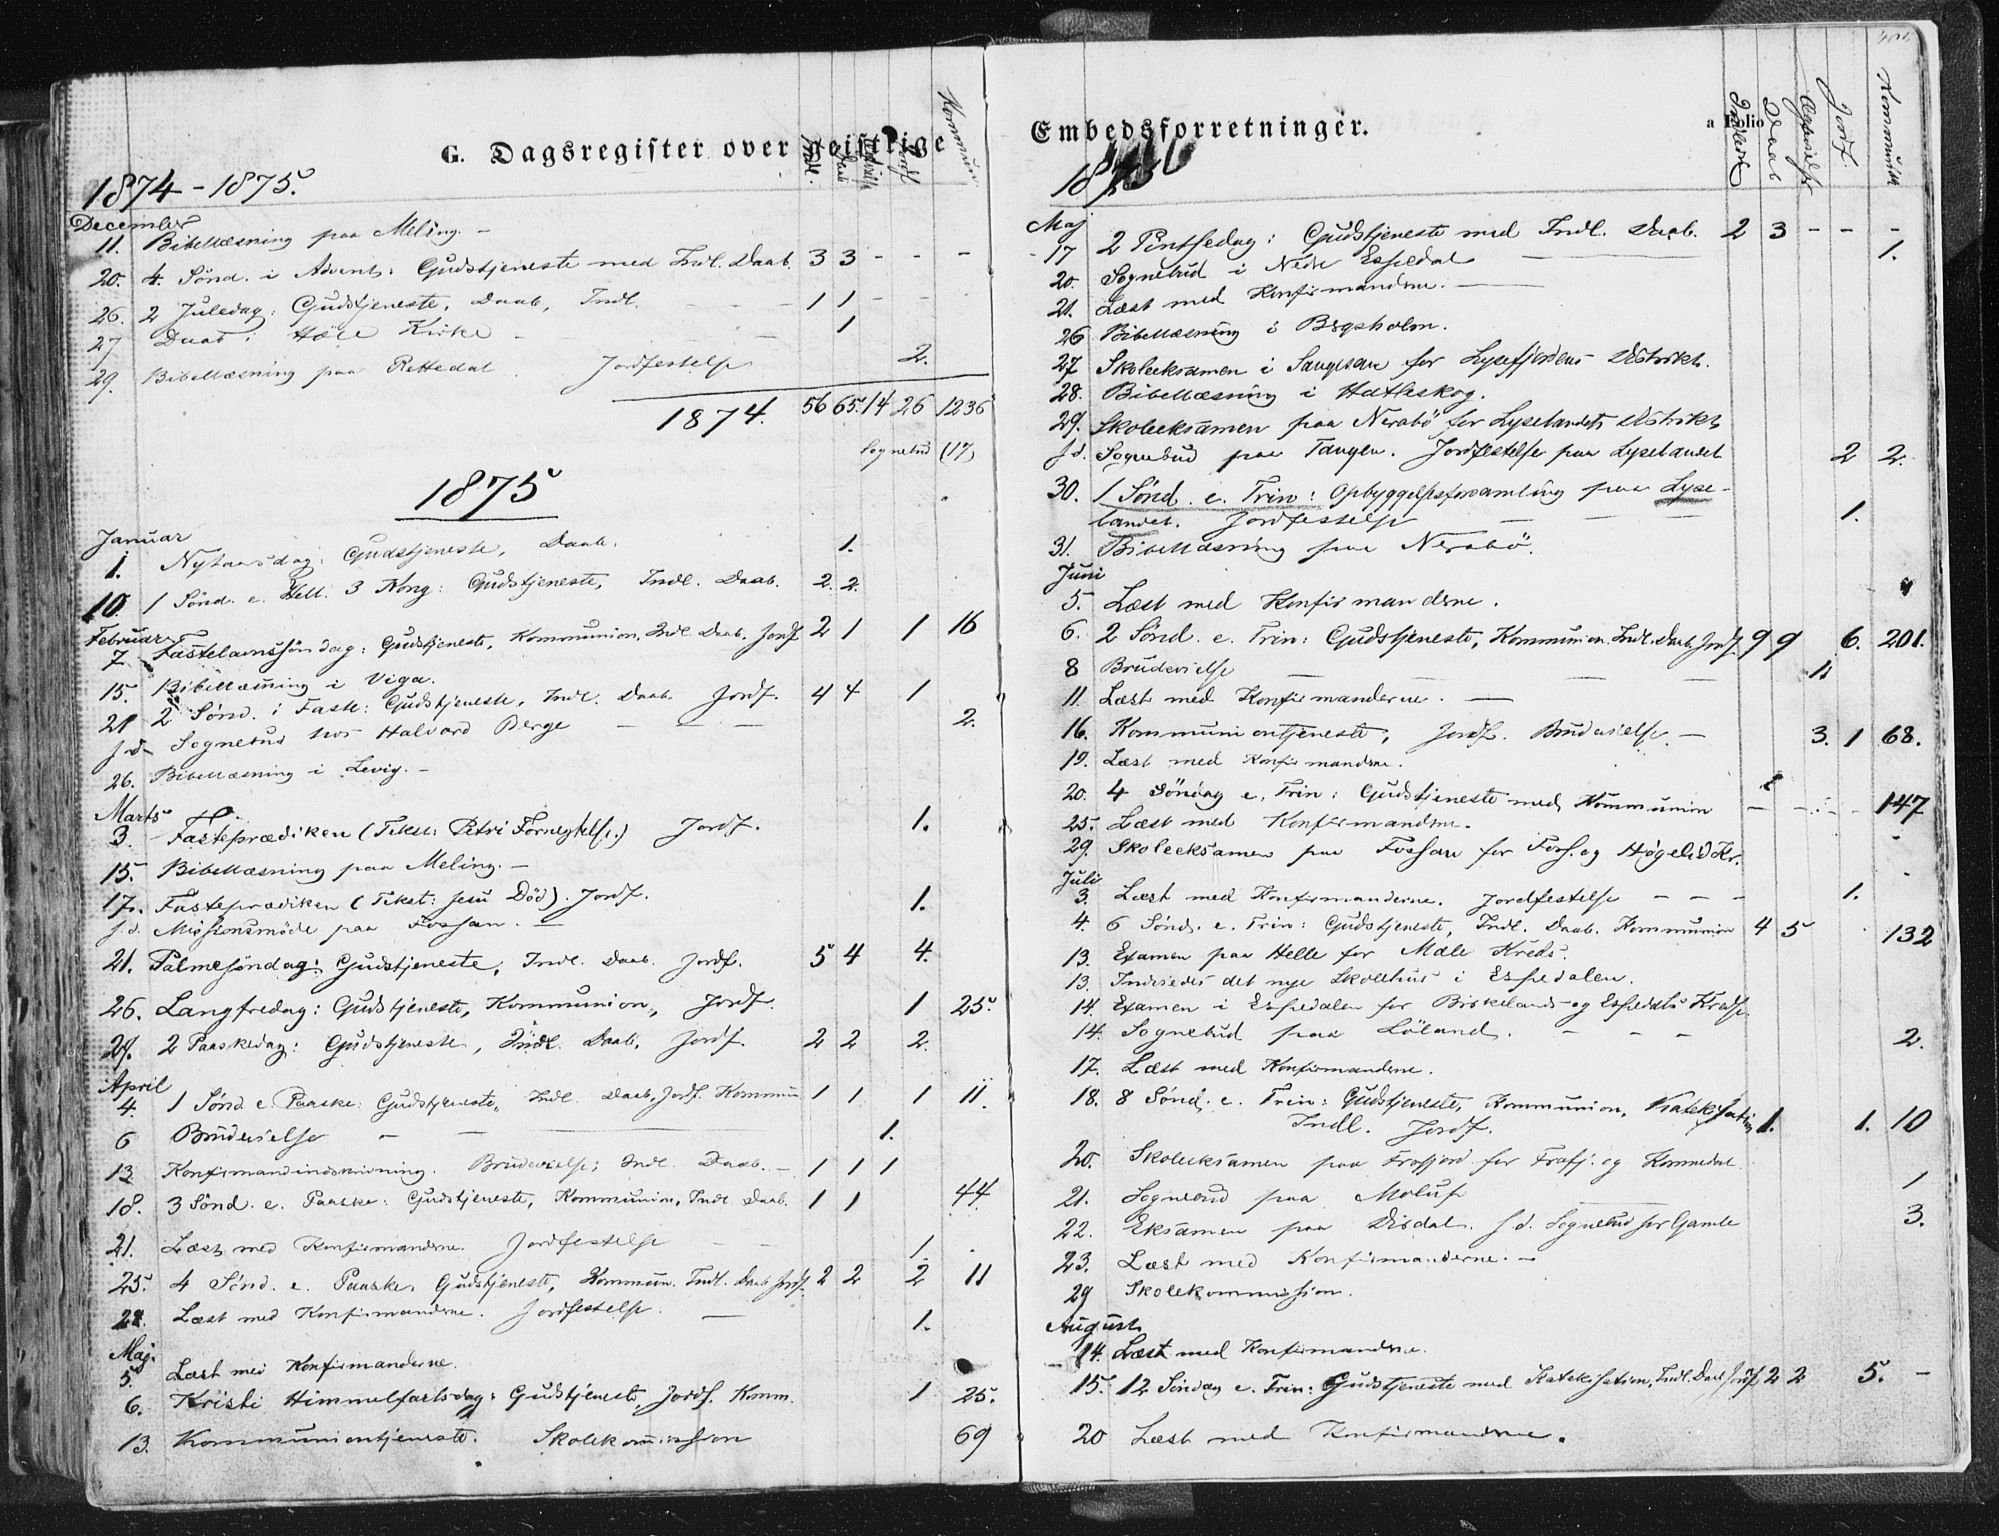 G. Dagsregister over geistlige
Indl. Daab Jordf Kommun
1874-1875.
December
11. Bibellæsning paa Meling. -
20. 4. Sönd. i Advent: Gudstjeneste med Indl. Daab. 3 3 - - -
26. 2 Juledag: Gudstjeneste, Daab, Indl. - - - 1 1 - -
27 Daab i Höle Kirke - - 1
29. Bibellæsning paa Rettedal. Jordfestelse 2.
1874. 56 65. 14 26 1236
Sognebud (17)
1875
Januar
1. Nytaarsdag: Gudstjeneste, Daab. 1.
10. 1 Sönd. e. Hell. 3 Kong: Gudstjeneste, Indl. Daab. 2. 2.
Februar
7. Fastelavnssöndag: Gudstjeneste, Kommunion, Indl. Daab. Jordf 2 1 1 16
15. Bibellæsning i Viga.
21 2 Sönd. i Faste: Gudstjeneste, Indl. Daab. Jordf. 4 4 1
s.d. Sognebud hos Halvard Berge - - - 2.
26. Bibellæsning i Levig. -
Marts
3. Fasteprædiken (Tekst: Petri Fornegtelse.) Jordf. 1.
15. Bibellæsning paa Meling. -
17. Fasteprædiken (Tekst: Jesu Död). Jordf. 1.
s.d. Missionsmöde paa Fossan. -
21. Palmesöndag: Gudstjeneste, Indl. Daab. Jordf. 5 4 4.
26. Langfredag: Gudstjeneste, Kommunion, Jordf. 1 25.
29. 2 Paaskedag: Gudstjeneste, Indl. Daab, Jordf. 2 2 2.
April
4. 1 Sönd. e. Paaske: Gudstjeneste, Indl. Daab, Jordf. Kommun 1 1 1 11.
6 Brudevielse - - - 1.
13. Konfirmandindskrivning. Brudevielse; Indl. Daab. - 1 1 1
18. 3 Sönd. e. Paaske: Gudstjeneste, Kommunion, Indl Daab. 1 1 44.
21. Læst med Konfirmanderne. Jordfestelse - - 1.
25. 4 Sönd. e. Paaske. Gudstjeneste, Kommun. Indl. Daab Jordf. 2 2 2 11
28. Læst med Konfirmanderne. Jordfestelse. - 1.
Maj.
5. Læst med Konfirmanderne.
6. Kristi Himmelfartsdag: Gudstjeneste, Jordf. Komm. 1 25.
13. Kommuniontjeneste. Skolekommission 69
Embedsforretninger.
a Folio
Daab Jordf. Kommunik
Maj
17 2 Pintsedag: Gudstjeneste med Indl. Daab. 2 3 - - -
20. Sognebud i Nedre Espedal - 1.
21. Læst med Konfirmanderne. -
26 Bibellæsning i Bergsholm.
27. Skoleeksamen i Sangesan for Lysefjordens Distrikt.
28. Bibellæsning i Hatleskog.
29. Skoleeksamen paa Nerabö for Lyselandets Distrikt
s.d. Sognebud paa Tangen. Jordfestelse paa Lyselandet 2 2.
30. 1 Sönd. e. Trin: Opbyggelsesforsamling paa Lyse-
landet. Jordfestelse - - - 1.
31. Bibellæsning paa Nerabö.
Juni
5. Læst med Konfirmanderne.
6. 2 Sönd. e. Trin: Gudstjeneste, Kommunion. Indl. Daab, Jordf. 9 9 6. 201.
8 Brudevielse - - - 1
11. Læst med Konfirmanderne. -
16. Kommuniontjeneste, Jordf. Brudevielse. - 3. 1 68.
19. Læst med Konfirmanderne.
20. 4 Söndag e. Trin: Gudstjeneste med Kommunion - - - - 147
25. Læst med Konfirmanderne.
29. Skoleeksamen paa Fossan for Fors. og Högelid Kr.
Juli
3. Læst med Konfirmanderne. Jordfestelse - - - 1.
4. 6 Sönd. e. Trin: Gudstjeneste, Indl. Daab. Kommunion 4 5 132
13. Examen paa Helle for Mæle Kreds.
13. Indviedes det nye Skolehus i Espedalen.
14. Examen i Espedalen for Birkelands- og Espedals Kredse.
14. Sognebud paa Löland. - - - 2.
17. Læst med Konfirmanderne.
18. 8 Sönd. e. Trin: Gudstjeneste, Kommunion, Katekisation
Indl. Jordf. 1. 1. 10
20. Skoleeksamen paa Frafjord for Frafj. og Kommedal.
21. Sognebud paa Molaug 1
22. Eksamen paa Dirdal. s.d. Sognebud for Gamle 3.
23. Læst med Konfirmanderne. -
29 Skolekommission.
August
14. Læst med Konfirmanderne.
15. 12 Söndag e. Trin: Gudstjeneste med Katekisation, Indl. Daab Jordf 2 2 5. -
20 Læst med Konfirmanderne.